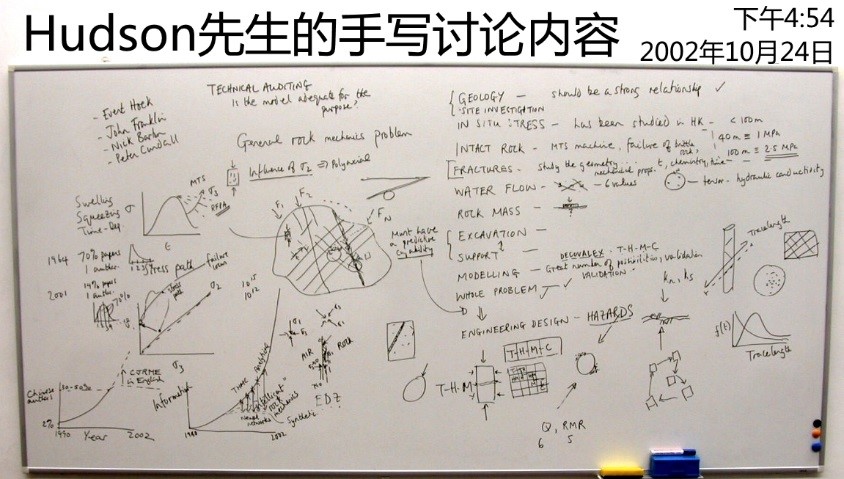 Hudson先生的手写讨论内容
下午4:54
2002年10月24日
- Evert Hoek
- John Franklin
- Nick Barton
- Peter Cundall
TECHNICAL AUDITING
Is the model adequate for the
purpose?
General rock mechanics problem
Influence of σ2 ⇒ Polyaxial
Swelling
Squeezing
Time-Dep.
σ
MTS
σ3
RFPA
ε
1964 70% papers
1 author
2001 14% papers
1 author
70%
stress path
failure
locus
stress
path
σ2
σ3
F1
F2
FN
Must have
a predictive
capability
10^15
10^12
AIR
ROCK
EDZ
Chinese
authors
30-50%
2%
1990 Year 2002
↑ IJRMS
in English
Information
Time
Analytic
"Intelligent"
rock
mechanics
neural
networks
Synthetic
1980 2002
GEOLOGY — should be a strong relationship ✓
SITE INVESTIGATION
IN SITU STRESS - has been studied in HK - < 100m
40m ≡ 1 MPa
100m ≡ 2.5 MPa
INTACT ROCK - MTS machine, failure of brittle
rock,
FRACTURES - Study the geometry
mechanical props, t, chemistry, time —
WATER FLOW - - 6 values
tensor - hydraulic conductivity
ROCK MASS -
EXCAVATION -
SUPPORT? -
DECOVALEX: T-H-M-C
MODELLING - Great number of possibilities, validation
VALIDATION -
WHOLE PROBLEM ✓
ENGINEERING DESIGN - HAZARDS
T-H-M
T-H-M-C
Q, RMR
6 5
kn, ks
Tracelength
f(t)
Tracelength